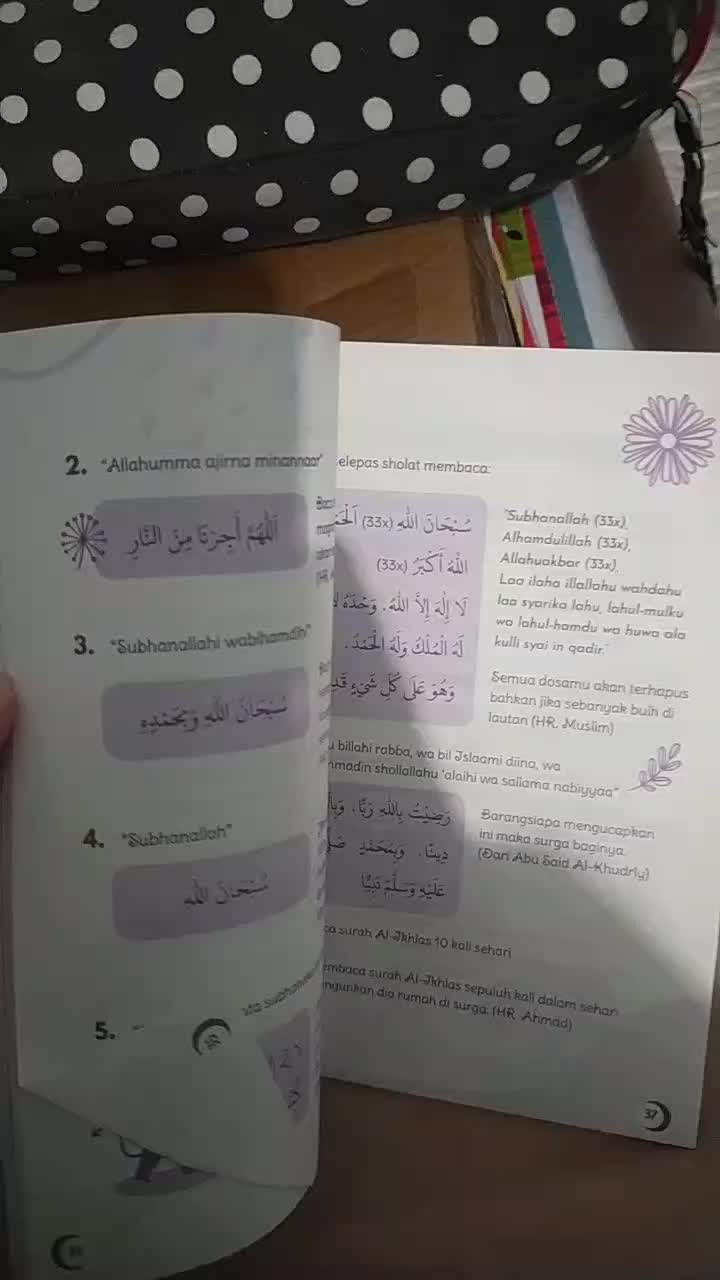 2. "Allahumma ajirna minannaar"
اَللّٰهُمَّ أَجِرْنَا مِنَ النَّارِ
3. "Subhanallahi wabihamdih"
سُبْحَانَ اللهِ وَبِحَمْدِهِ
4. "Subhanallah"
سُبْحَانَ الله
5. "
elepas sholat membaca:
سُبْحَانَ اللهِ (33x)
اَللهُ أَكْبَرُ (33x)
لَا إِلٰهَ إِلاَّ اللهُ. وَحْدَهُ
لَهُ الْمُلْكُ وَلَهُ الْحَمْدُ.
وَهُوَ عَلَى كُلِّ شَيْءٍ
"Subhanallah (33x),
Alhamdulillah (33x),
Allahuakbar (33x),
Laa ilaha illallahu wahdahu
laa syarika lahu, lahul-mulku
wa lahul-hamdu wa huwa ala
kulli syai in qadir."
Semua dosamu akan terhapus
bahkan jika sebanyak buih di
lautan (HR. Muslim)
billahi rabba, wa bil Islaami diina, wa
madin shollallahu 'alaihi wa sallama nabiyyaa"
رَضِيْتُ بِاللهِ رَبًّا.
دِينًا. وَبِمُحَمَّدٍ
عَلَيْهِ وَسَلَّمَ نَبِيًّا
Barangsiapa mengucapkan
ini maka surga baginya.
(Dari Abu Said Al-Khudriy)
surah Al-Ikhlas 10 kali sehari
embaca surah Al-Ikhlas sepuluh kali dalam sehari
ngunkan dia rumah di surga. (HR. Ahmad)
37